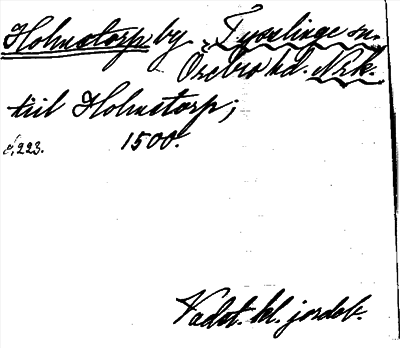 Holmstorp by, Tysslinge sn.
Örebro hd. Nrk.
till Holmstorp;
1500.
223.
Vadst. kl. jordeb.